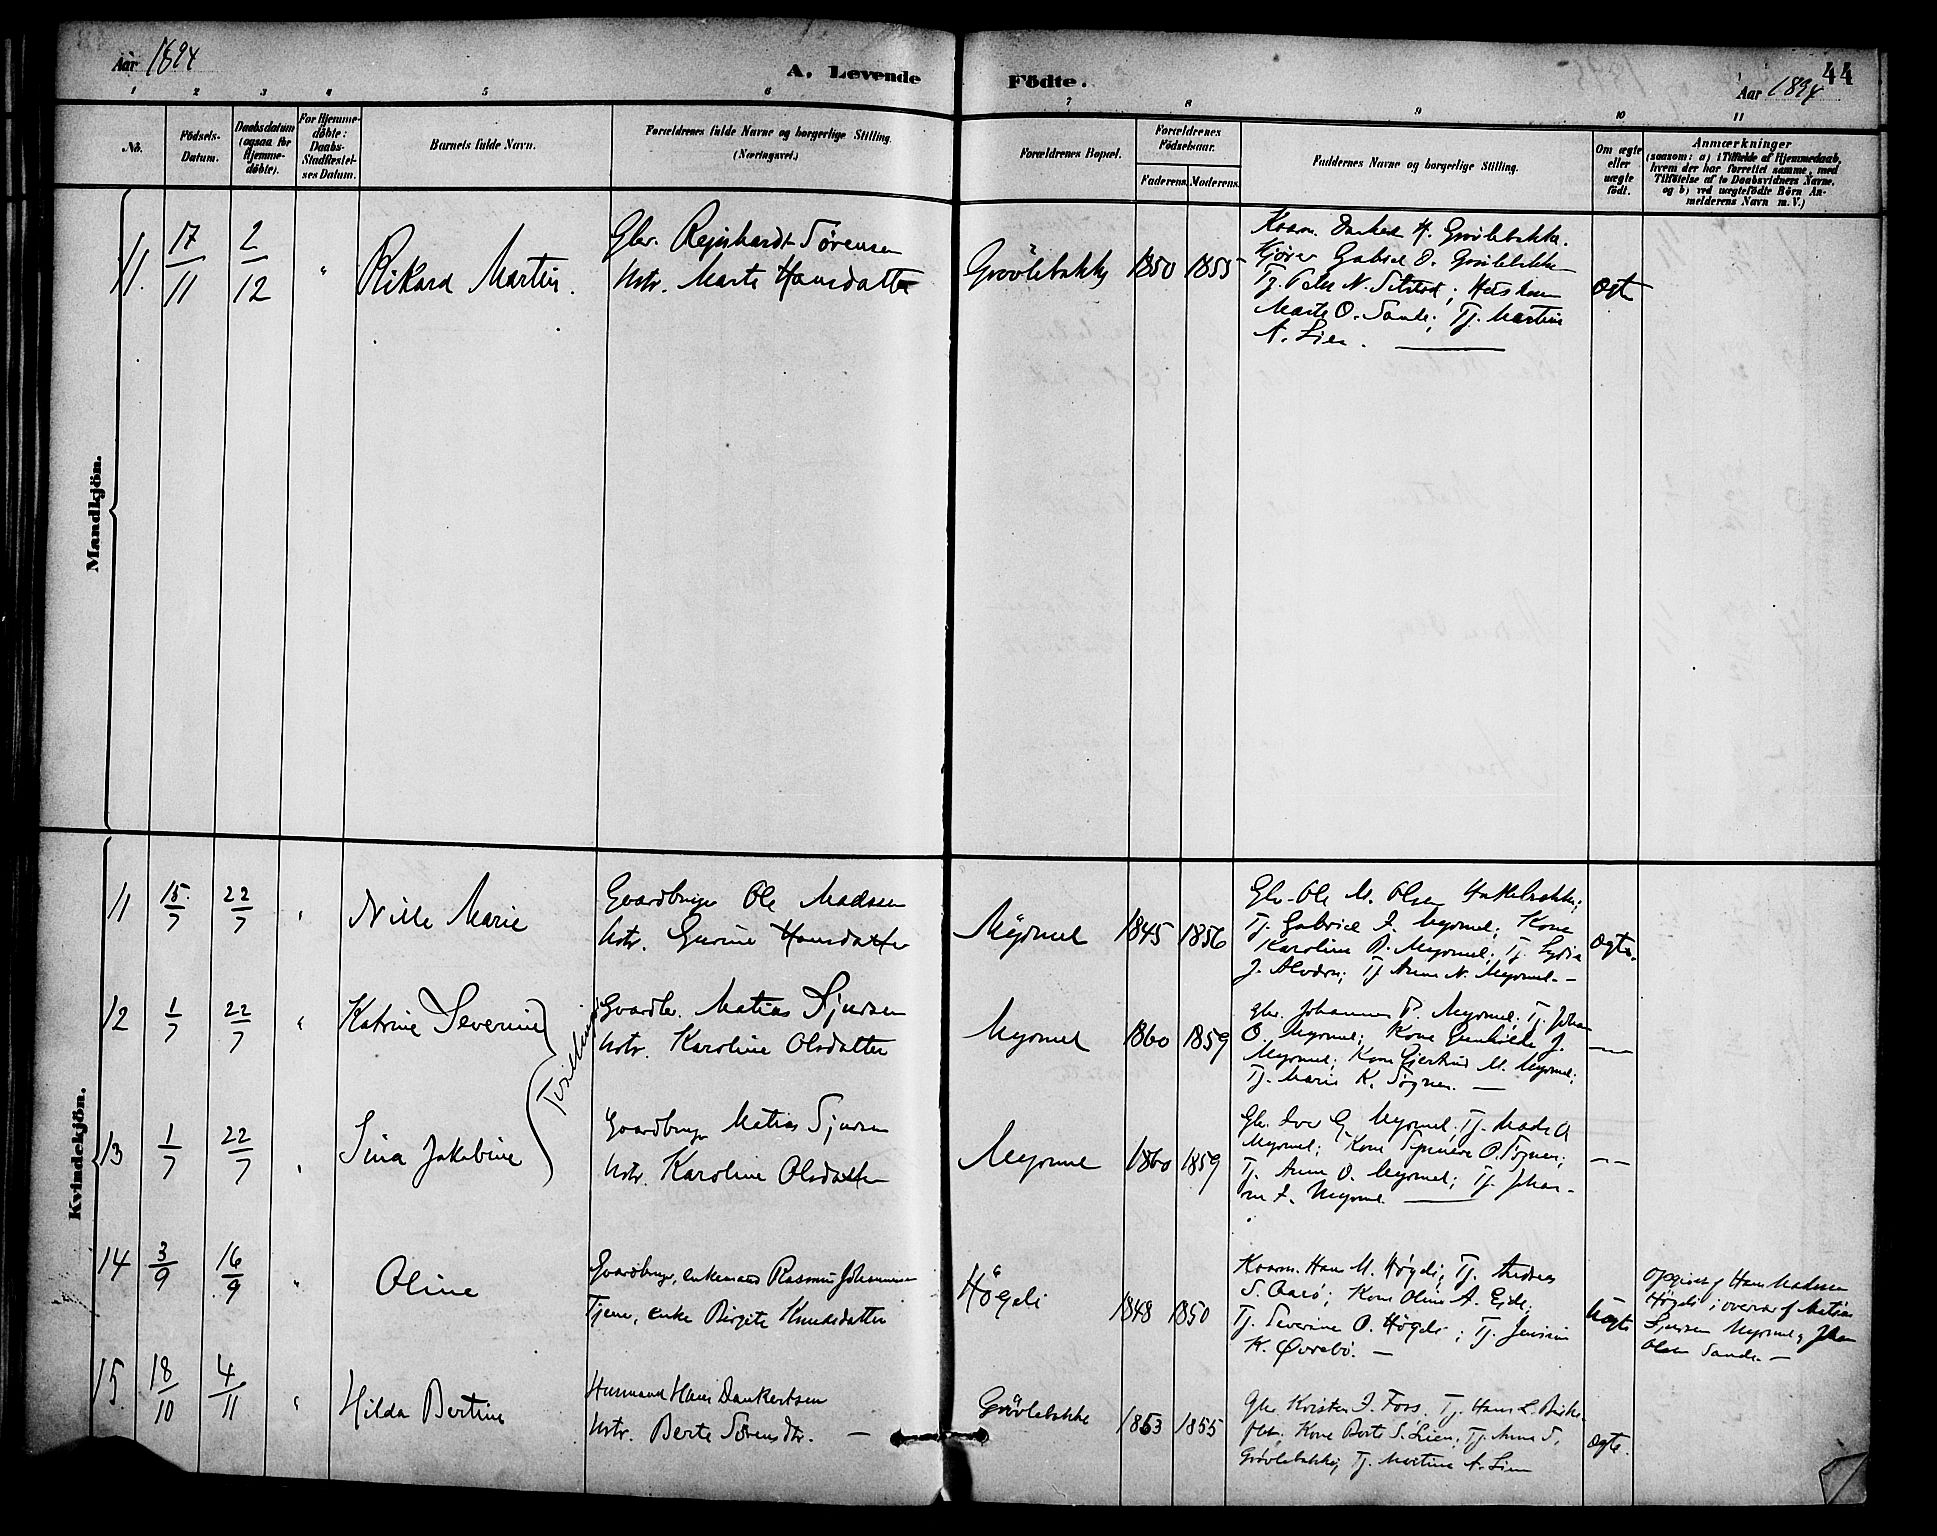 Aar 1894
A. Levende Födte.
Aar 1894
44
1 2 3 4 5 6 7 8 9 10 11
No.
Födsels-Datum.
Daabsdatum (ogsaa for Hjemme-döbte).
For Hjemme-döbte: Daabs-Stadfæstel-ses Datum.
Barnets fulde Navn.
Forældrenes fulde Navne og borgerlige Stilling. (Næringsvei.)
Forældrenes Bopæl.
Forældrenes Födselsaar.
Faderens. Moderens.
Faddernes Navne og borgerlige Stilling.
Om ægte eller uægte födt.
Anmærkninger
(saasom: a) i Tilfælde af Hjemmedaab, hvem der har forrettet samme, med Tilföielse af to Daabsvidners Navne, og b) ved uægtefödte Börn An-melderens Navn m. V.)
Mandkjön.
11. 17/11 2/12 " Rikard Martin.
Gbr. Rejnhardt Sørensen
Hstr. Marte Hansdatter
Grovlebakke 1850 1855
Kaarm. H. Grovlebakke.
Gabriel O. Grovlebakke
Tj. Peder N.
Marte O. Sande; Tj. Martine
A. Lien.
Kvindekjön.
11 15/7 22/7 " Nille Marie
Gaardbruger Ole Madsen
Hstr. Gurine Hansdatter
Myrmel 1845 1856
Gbr. Ole M. Olsen
Tj. Gabriel I. Myrmel; Kone
Karoline P. Myrmel; Tj. Lydia
J. Tj. Anne N. Myrmel. —
ægte.
12 1/7 22/7 " Katrine Severine
Gaardbr. Matias Sjursen
Hstr. Karoline Olsdatter
Myrmel 1860 1859
Gbr. Johannes P. Myrmel; Tj. Johan
O. Myrmel; Kone J.
Myrmel; Kone Gjertrud M. Myrmel;
Tj. Marie K. —
—
Tvillinger
13 1/7 22/7 " Sina Jakobine
Gaardbruger Matias Sjursen
Hstr. Karoline Olsdatter
Myrmel 1860 1859
Gbr. Iver G. Myrmel; Tj. Mads A
Myrmel; Kone
Tj. Anne O. Myrmel; Tj. Johan-
I. Myrmel.
—
14 3/9 16/9 " Oline
Gaardbruger, enkemand Rasmus Johannesen
Tjene, enke Birgite Knudsdatter
Høgeli 1848 1850
Kaarm. Hans M. Høgeli; Tj. Andreas
S. Kone Oline A. Eide;
Tj. Severine O. Høgeli; Tj.
K. Øvrebø. —
uægte
Opgives af Hans Madsen
Høgeli i overvær af Matias
Sjursen Myrmel og Johan
Olsen Sande. —
15 18/10 4/11 " Hilda Bertine
Husmand Hans Dankertsen
Hstr. Berte Sørensdtr. —
Grovlebakke 1853 1855
Gbr. Kristen I. Fors; Tj. Hans L.
Kone Berte S. Lien; Tj. Anne S.
Grovlebakke; Tj. Martine A. Lien
ægte.